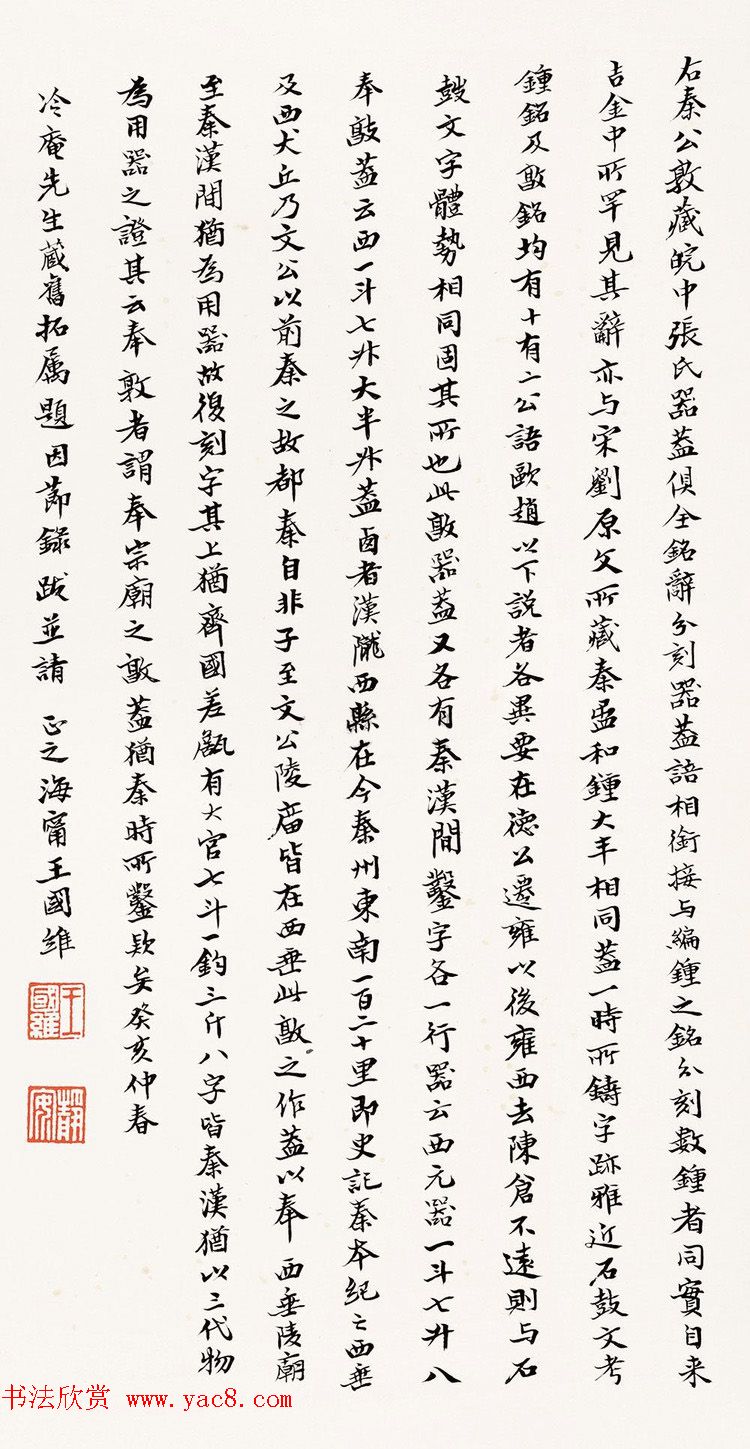 右秦公敦藏皖中張氏器蓋俱全銘辭分刻器蓋語相銜接与編鍾之銘分刻數鍾者同實自来
吉金中所罕見其辭亦与宋劉原父所藏秦盄和鍾大半相同蓋一時所鑄字跡雅近石鼓文考
鍾銘及敦銘均有十有二公語歐趙以下説者各異要在德公遷雍以後雍西去陳倉不遠則与石
鼓文字體勢相同固其所也此敦器蓋又各有秦漢間鑿字各一行器云西元器一斗七升八
奉敦蓋云西一斗七升大半升蓋西者漢隴西縣在今秦州東南一百二十里即史記秦本紀之西垂
及西犬丘乃文公以前秦之故都秦自非子至文公陵廟皆在西垂此敦之作蓋以奉西垂陵廟
至秦漢間猶為用器故復刻字其上猶齊國差𦉜有大官七斗一鈞三斤八字皆秦漢猶以三代物
為用器之證其云奉敦者謂奉宗廟之敦蓋猶秦時所鑿款矣癸亥仲春
冷庵先生藏舊拓属題因節錄跋並請 正之海甯王國維
王國維
靜安
书法欣赏 www.yac8.com